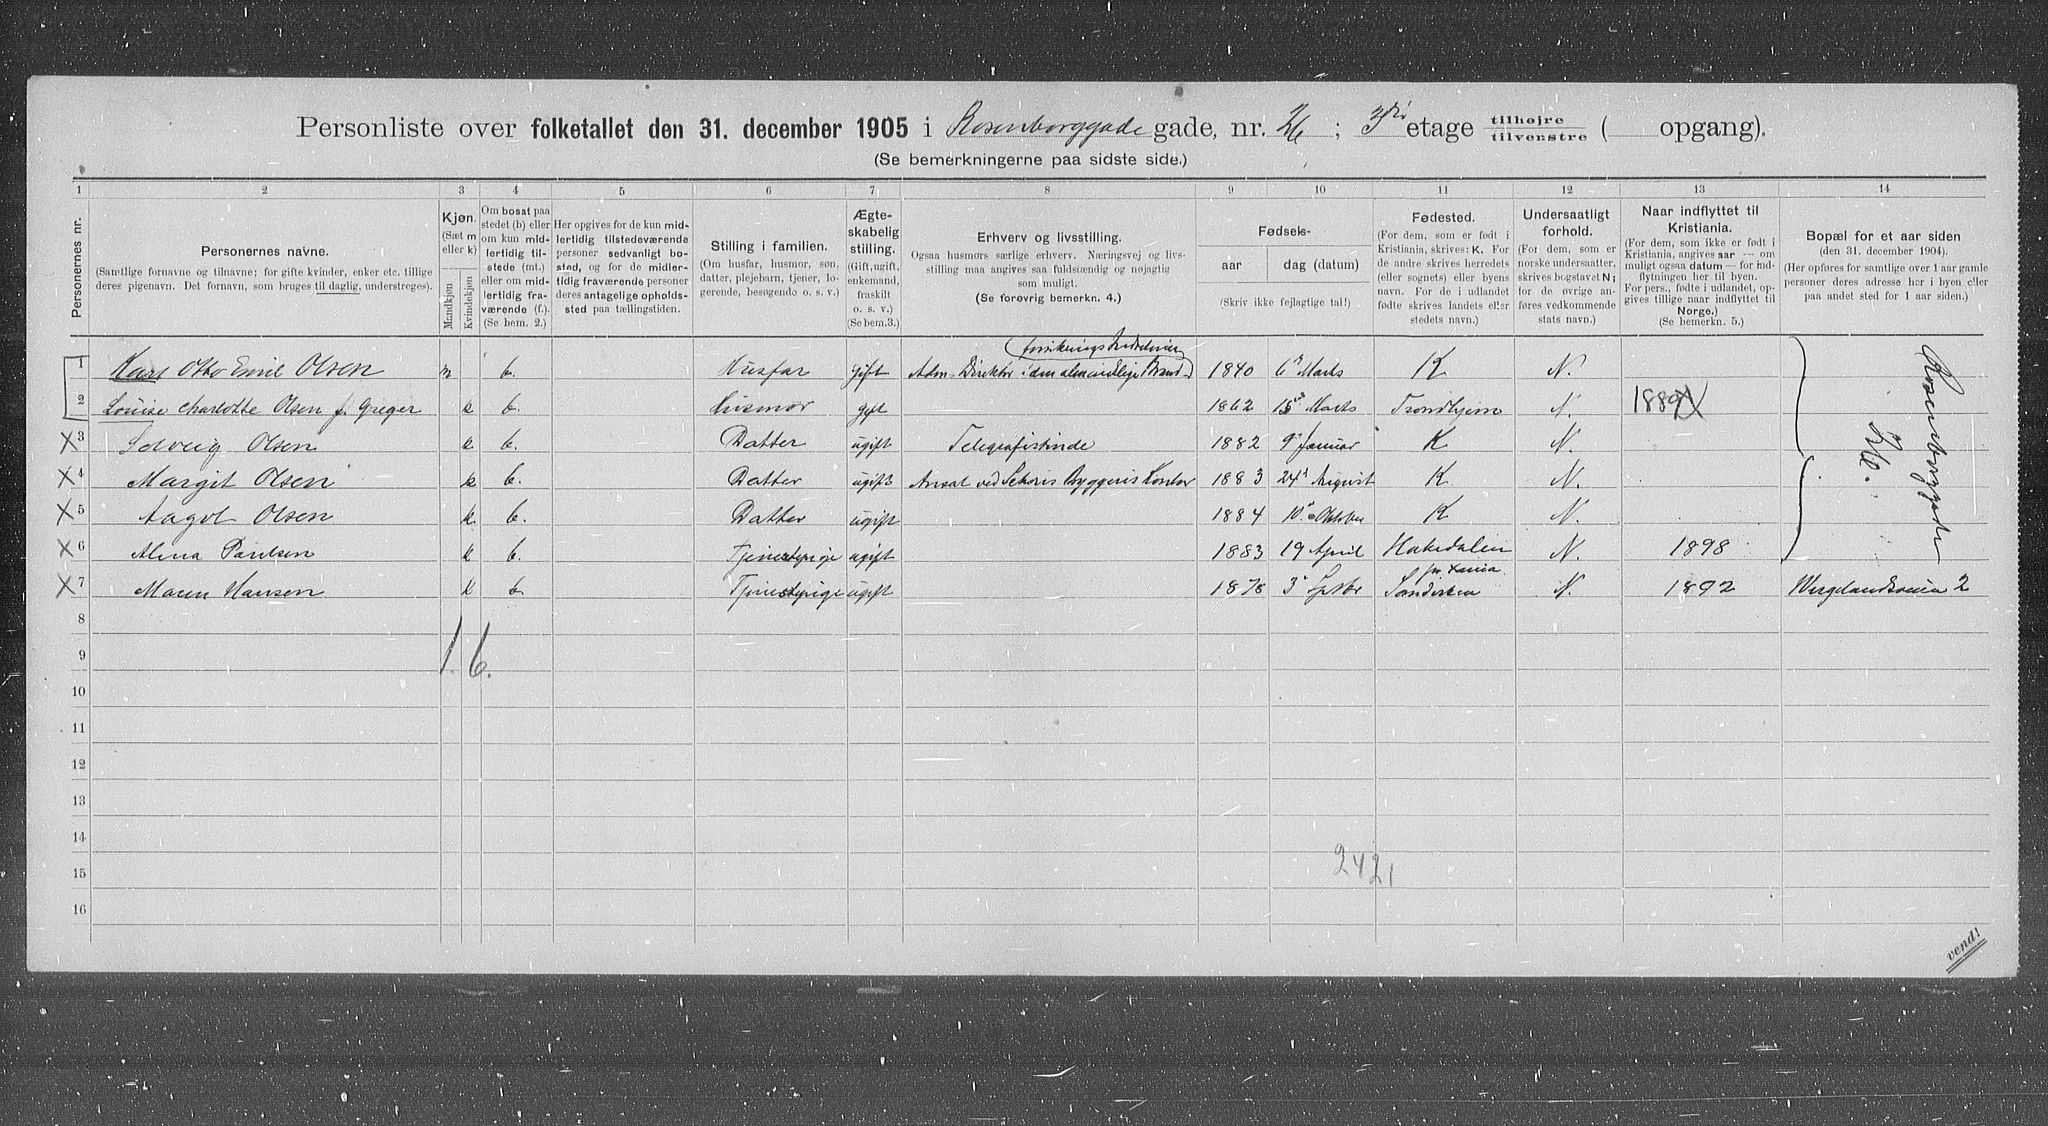 Personliste over folketallet den 31. december 1905 i Rosenborggade gade, nr. 26 ; 3die etage tilhøjre tilvenstre ( opgang).
(Se bemerkningerne paa sidste side.)
1 2 3 4 5 6 7 8 9 10 11 12 13 14
Personernes nr.
Personernes navne.
(Samtlige fornavne og tilnavne; for gifte kvinder, enker etc. tillige
deres pigenavn. Det fornavn, som bruges til daglig, understreges).
Kjøn.
(Sæt m
eller k)
Mandkjøn
Kvindekjøn
Om bosat paa
stedet (b) eller
om kun mid-
lertidig til-
stede (mt.)
eller om mid-
lertidig fra-
værende (f.).
(Se bem. 2.)
Her opgives for de kun mid-
lertidig tilstedeværende
personer sedvanligt bo-
sted, og for de midler-
tidig fraværende personer
deres antagelige opholds-
sted paa tællingstiden.
Stilling i familien.
(Om husfar, husmor, søn,
datter, plejebarn, tjener, lo-
gerende, besøgende o. s. v.)
Ægte-
skabelig
stilling.
(Gift, ugift,
enkemand,
fraskilt
o. s. v.)
(Se bem. 3.)
Erhverv og livsstilling.
Ogsaa husmors særlige erhverv. Næringsvej og livs-
stilling maa angives saa fuldstændig og nøjagtig
som muligt.
(Se forøvrig bemerkn. 4.)
Fødsels-
aar dag (datum)
(Skriv ikke fejlagtige tal!)
Fødested.
(For dem, som er født i
Kristiania, skrives: K. For
de andre skrives herredets
(eller sognets) eller byens
navn. For de i udlandet
fødte skrives landets eller
stedets navn.)
Undersaatligt
forhold.
(For dem, som er
norske undersaatter,
skrives bogstavet N;
for de øvrige an-
føres vedkommende
stats navn.)
Naar indflyttet til
Kristiania.
(For dem, som ikke er født i
Kristiania, angives aar — om
muligt ogsaa datum — for ind-
flytningen her til byen.
For pers., fødte i udlandet, op-
gives tillige naar indflyttet til
Norge.)
(Se bemerkn. 5.)
Bopæl for et aar siden
(den 31. december 1904).
(Her opføres for samtlige over 1 aar gamle
personer deres adresse her i byen eller
paa andet sted for 1 aar siden.)
1 Hans Otto Emil Olsen m b. Husfar gift Adm. Direktør i den almindelige Brand- 1840 6 Marts K N.
2 Louise Charlotte Olsen f. Greger k b. Husmor gift 1862 15 Marts Trondhjem N.
X 3 Solveig Olsen k b. Datter ugift Telegrafistinde 1882 9 Januar K N.
X 4 Margit Olsen k b. Datter ugift Ansat ved Kontor 1883 24 August K N.
X 5 Aagot Olsen k. b. Datter ugift 1884 10 Oktober K N.
X 6 Alma Paulsen k b. Tjenestepige ugift 1883 19 April Hakedalen N. 1898
X 7 Maren Hansen k b Tjenestepige ugift 1878 3 Septbr Sandviken N. 1892 Wergelandsveien 2
Rosenborggade
26.
8
1. 6.
9
10
11
12
13
14
2421
15
16
vend!